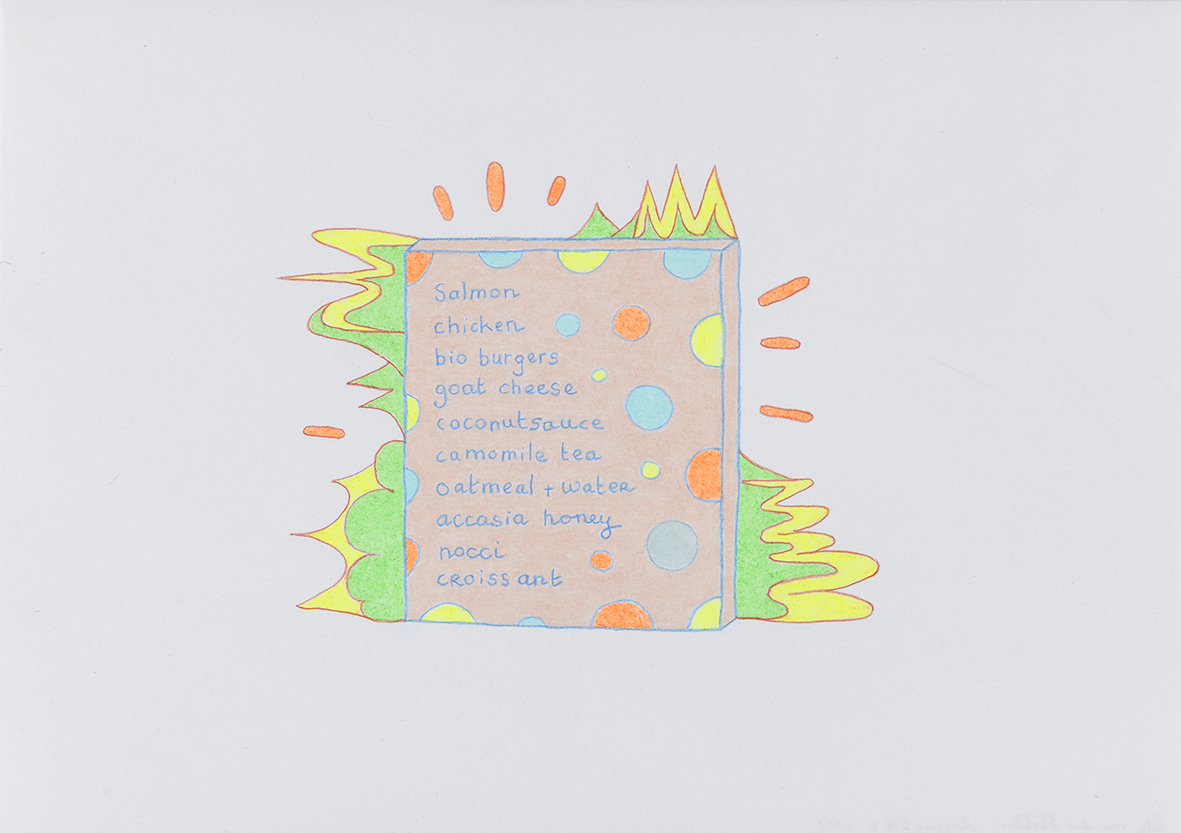 Salmon
chicken
bio burgers
goat cheese
coconutsauce
camomile tea
oatmeal + water
accasia honey
nocci
croissant